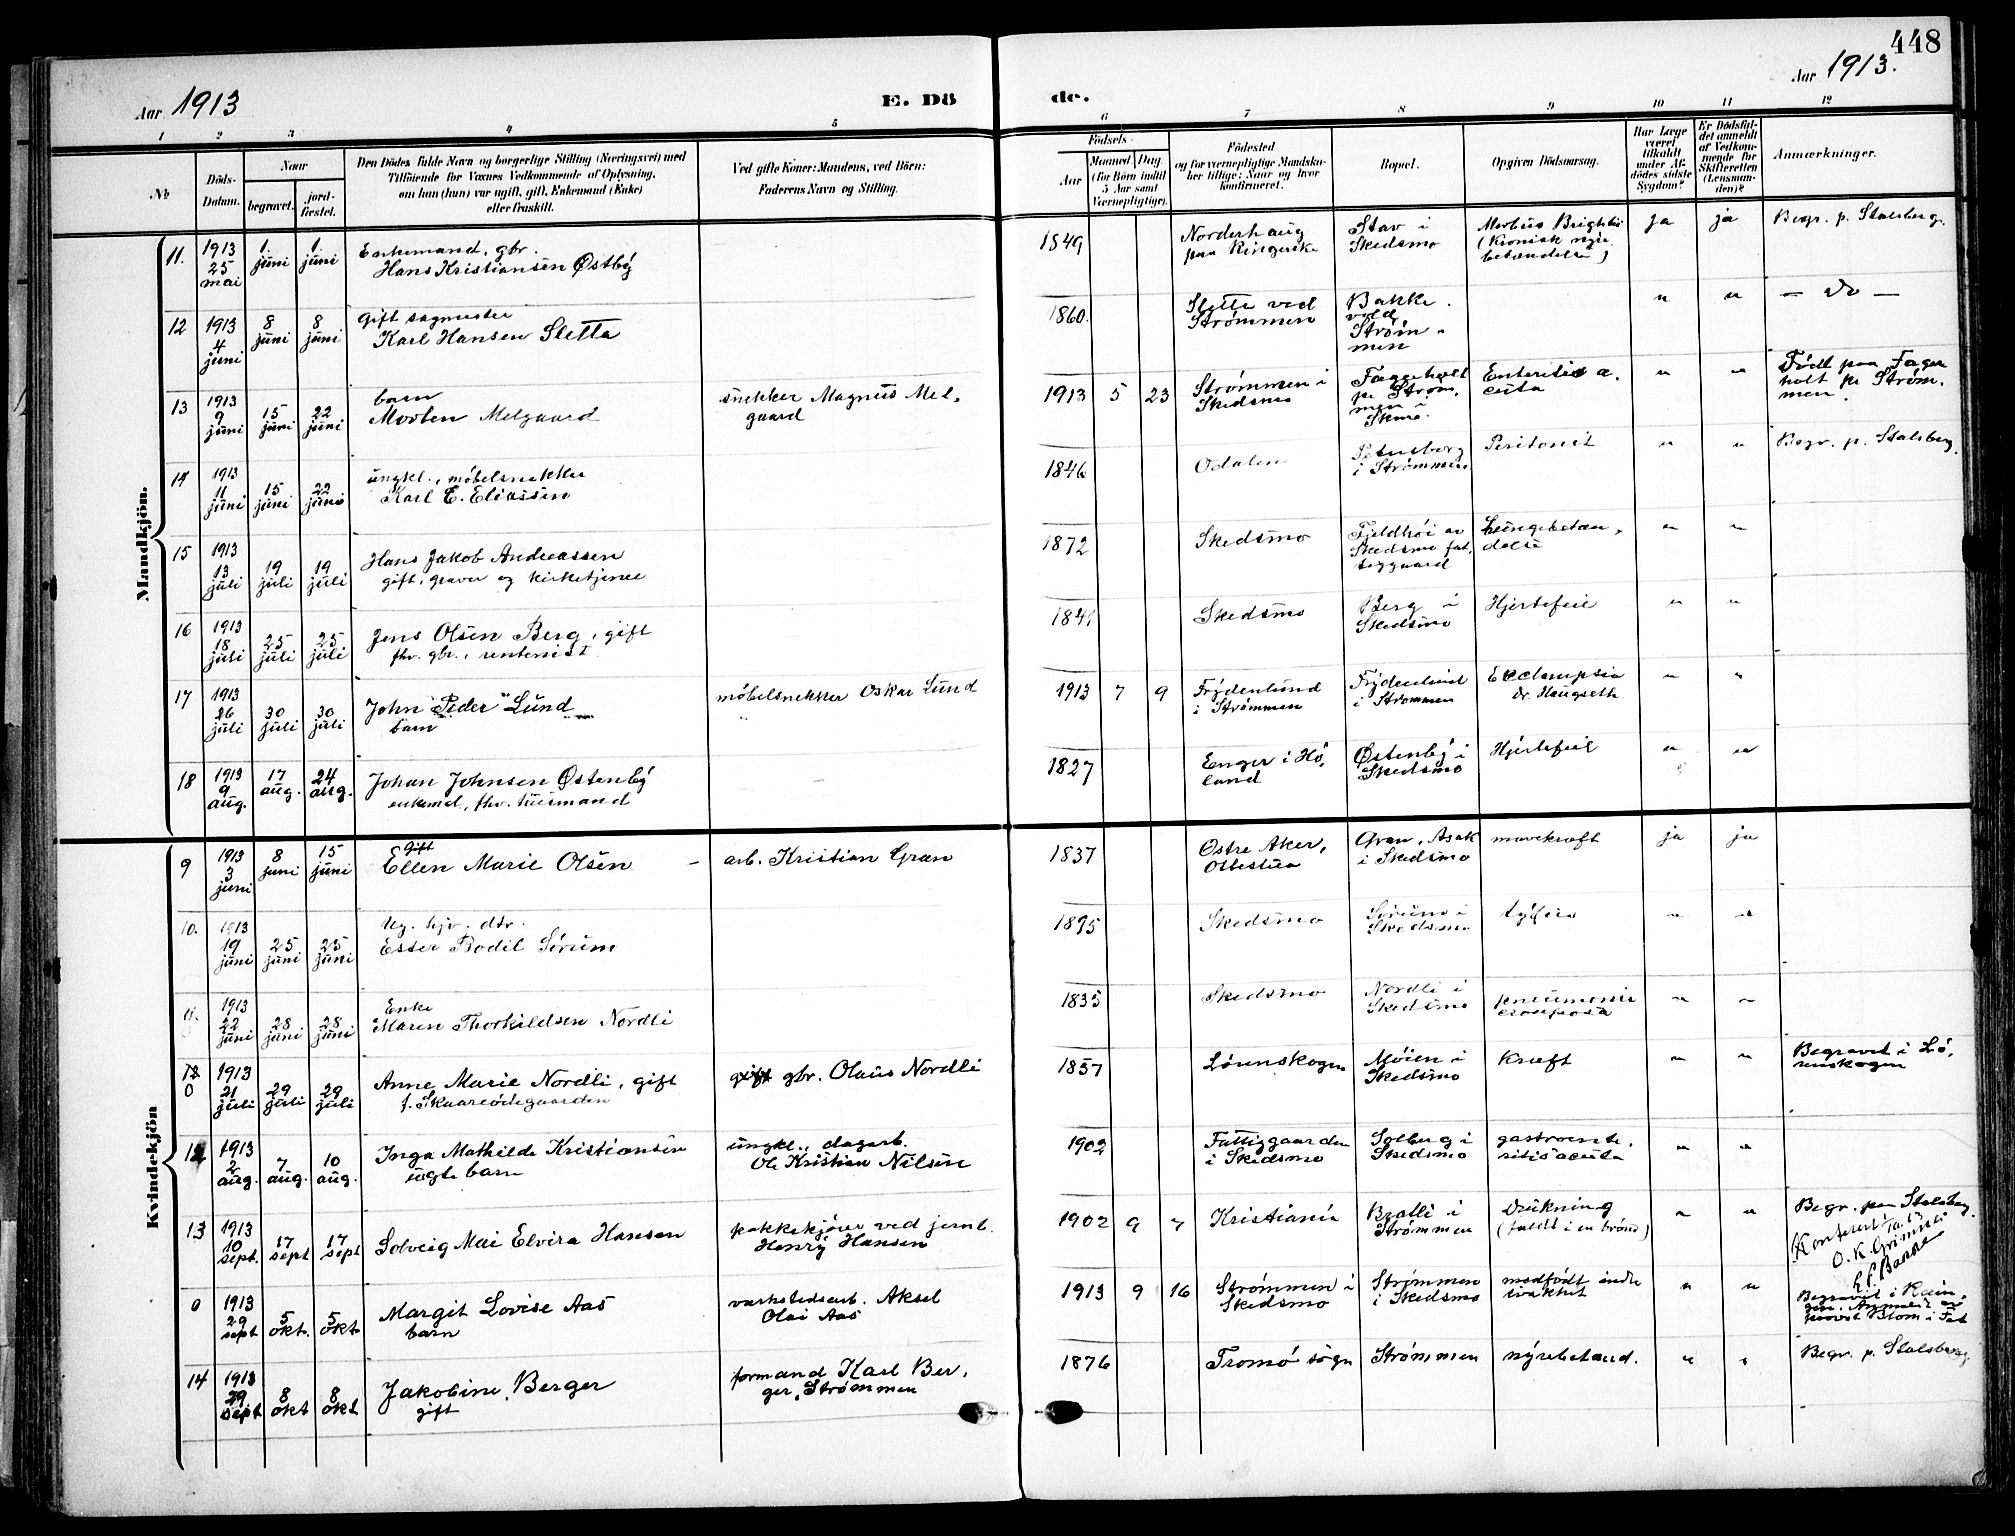 448
Aar 1913
E. Dö
de.
Aar 1913.
1 2 3 4 5 6 7 8 9 10 11 12
No
Döds-
Datum.
Naar
begravet.
jord-
fæstet.
Den Dödes fulde Navn og borgerlige Stilling (Næringsvei) med
Tilföiende for Voxnes Vedkommende af Oplysning,
om han (hun) var ugift, gift, Enkemand (Enke)
eller fraskilt.
Ved gifte Koner: Mandens, ved Börn:
Faderens Navn og Stilling.
Födsels-
Aar
Maaned Dag
(for Börn indtil
5 Aar samt
Værnepligtige).
Födested
og for værnepligtige Mandska-
ber tillige: Naar og hvor
konfirmeret.
Bopæl.
Opgiven Dödsaarsag.
Har Læge
været
tilkaldt
under Af-
dödes sidste
Sygdom?
Er Dödsfal-
det anmeldt
af Vedkom-
mende for
Skifteretten
(Lensman-
den)?
Anmærkninger.
Mandkjön.
11. 1913 25 mai 1. juni 1. juni
Enkemand, gbr.
Hans Kristiansen Østby
1849
Norderhaug
paa Ringerike
Stav i
Skedsmo
Morbus Brightii
(Kronisk nyre
betændelse)
ja ja
Begr. p. Stalsberg.
12 1913 4 juni 8 juni 8 juni
Gift sagmester
Karl Hansen Sletta
1860.
Sletta ved
Strømmen
Bakke
ved
Strøm-
men
" "
— Do —
13 1913 9 juni 15 juni 22 juni
barn
Morten Melgaard
snekker Magnus Mel-
gaard
1913 5 23
Strømmen i
Skedsmo
Fagerholt
pr Strøm-
men i
Skmo.
Enteritis a-
cuta
" "
Født paa Fager
holt pr Strøm-
men.
14 1913 11 juni 15 juni 22 juni
ungkl., møbelsnekker
Karl E. Eliassen
1846
Odalen
Petersborg
i Strømmen
Peritonit
" "
Begr. p. Stalsberg
15 1913 13 juli 19 juli 19 juli
Hans Jakob Andreassen
gift, graver og kirketjener
1872
Skedsmo
Fjeldhøi av
Skedsmo fat-
tiggaard
Lungebetæn-
delse
" "
16 1913 18 juli 25 juli 25 juli
Jens Olsen Berg, gift
fhv. gbr., rentenist
1841
Skedsmo
Berg i
Skedsmo
Hjertefeil
" "
17 1913 26 juli 30 juli 30 juli
John "Peder" Lund
barn
møbelsnekker Oskar Lund
1913 7 9
Frydenlund
i Strømmen
Frydenlund
i Strømmen
Eclampsia
dr. Haugseth
" "
18 1913 9 aug. 17 aug. 24 aug.
Johan Johnsen Østenby
enkemd., fhv. husmand
1827
Enger i Hø-
land
Østenby i
Skedsmo
Hjertefeil
" "
Kvindekjön
9 1913 3 juni 8 juni 15 juni
gift
Ellen Marie Olsen
arb. Kristian Gran
1837
Østre Aker,
Ottestua
Gran, Asak
i Skedsmo
mavekræft
ja ja
10. 1913 19 juni 25 juni 25 juni
Ug. hjv. dtr.
Ester Bodil Sørum
1895
Skedsmo
Sørum i
Skedsmo
tyfus
" "
11. 1913 22 juni 28 juni 28 juni
Enke
Maren Thorkildsen Nordli
1835
Skedsmo
Nordli i
Skedsmo
pneumonia
crouposa
" "
12 0 1913 21 juli 29 juli 29 juli
Anne Marie Nordli, gift
f. Skaareødegaarden
gift gbr. Olaus Nordli
1857
Lørenskogen
Møien i
Skedsmo
Kræft
" "
Begravet i Lø-
renskogen
12 1913 2 aug. 7 aug. 10 aug.
Inga Mathilde Kristiansen
uegte barn
ungkl., dagarb.
Ole Kristian Nilsen
1902
Fattiggaarden
i Skedsmo
Solberg i
Skedsmo
gastroente-
ritis acuta
" "
13 1913 10 sept. 17 sept 17 sept
Solveig Mai Elvira Hansen
pakkskjører ved jernb.
Henry Hansen
1902 9 7
Kristiania
Bratli i
Strømmen
Drukning
(faldt i en brønd)
" "
Begr. paa Stalsberg
(Konferert
O. K. Grimnes
0 1913 29 sept 5 okt. 5 okt.
Margit Lovise Aas
barn
værkstedsarb. Aksel
Olai Aas
1913 9 16
Strømmen i
Skedsmo
Strømmen
i Skedsmo
medfødt indre
svakhet
" "
Begravet i Rælin-
gen. Anmeldt av
provst Blom i Fet
14 1913 29 sept 8 okt 8 okt
Jakobine Berger
gift
formand Karl Ber-
ger, Strømmen
1876
Tromø sogn
Strømmen
nyrebetænd.
" "
Begr. p. Stalsberg